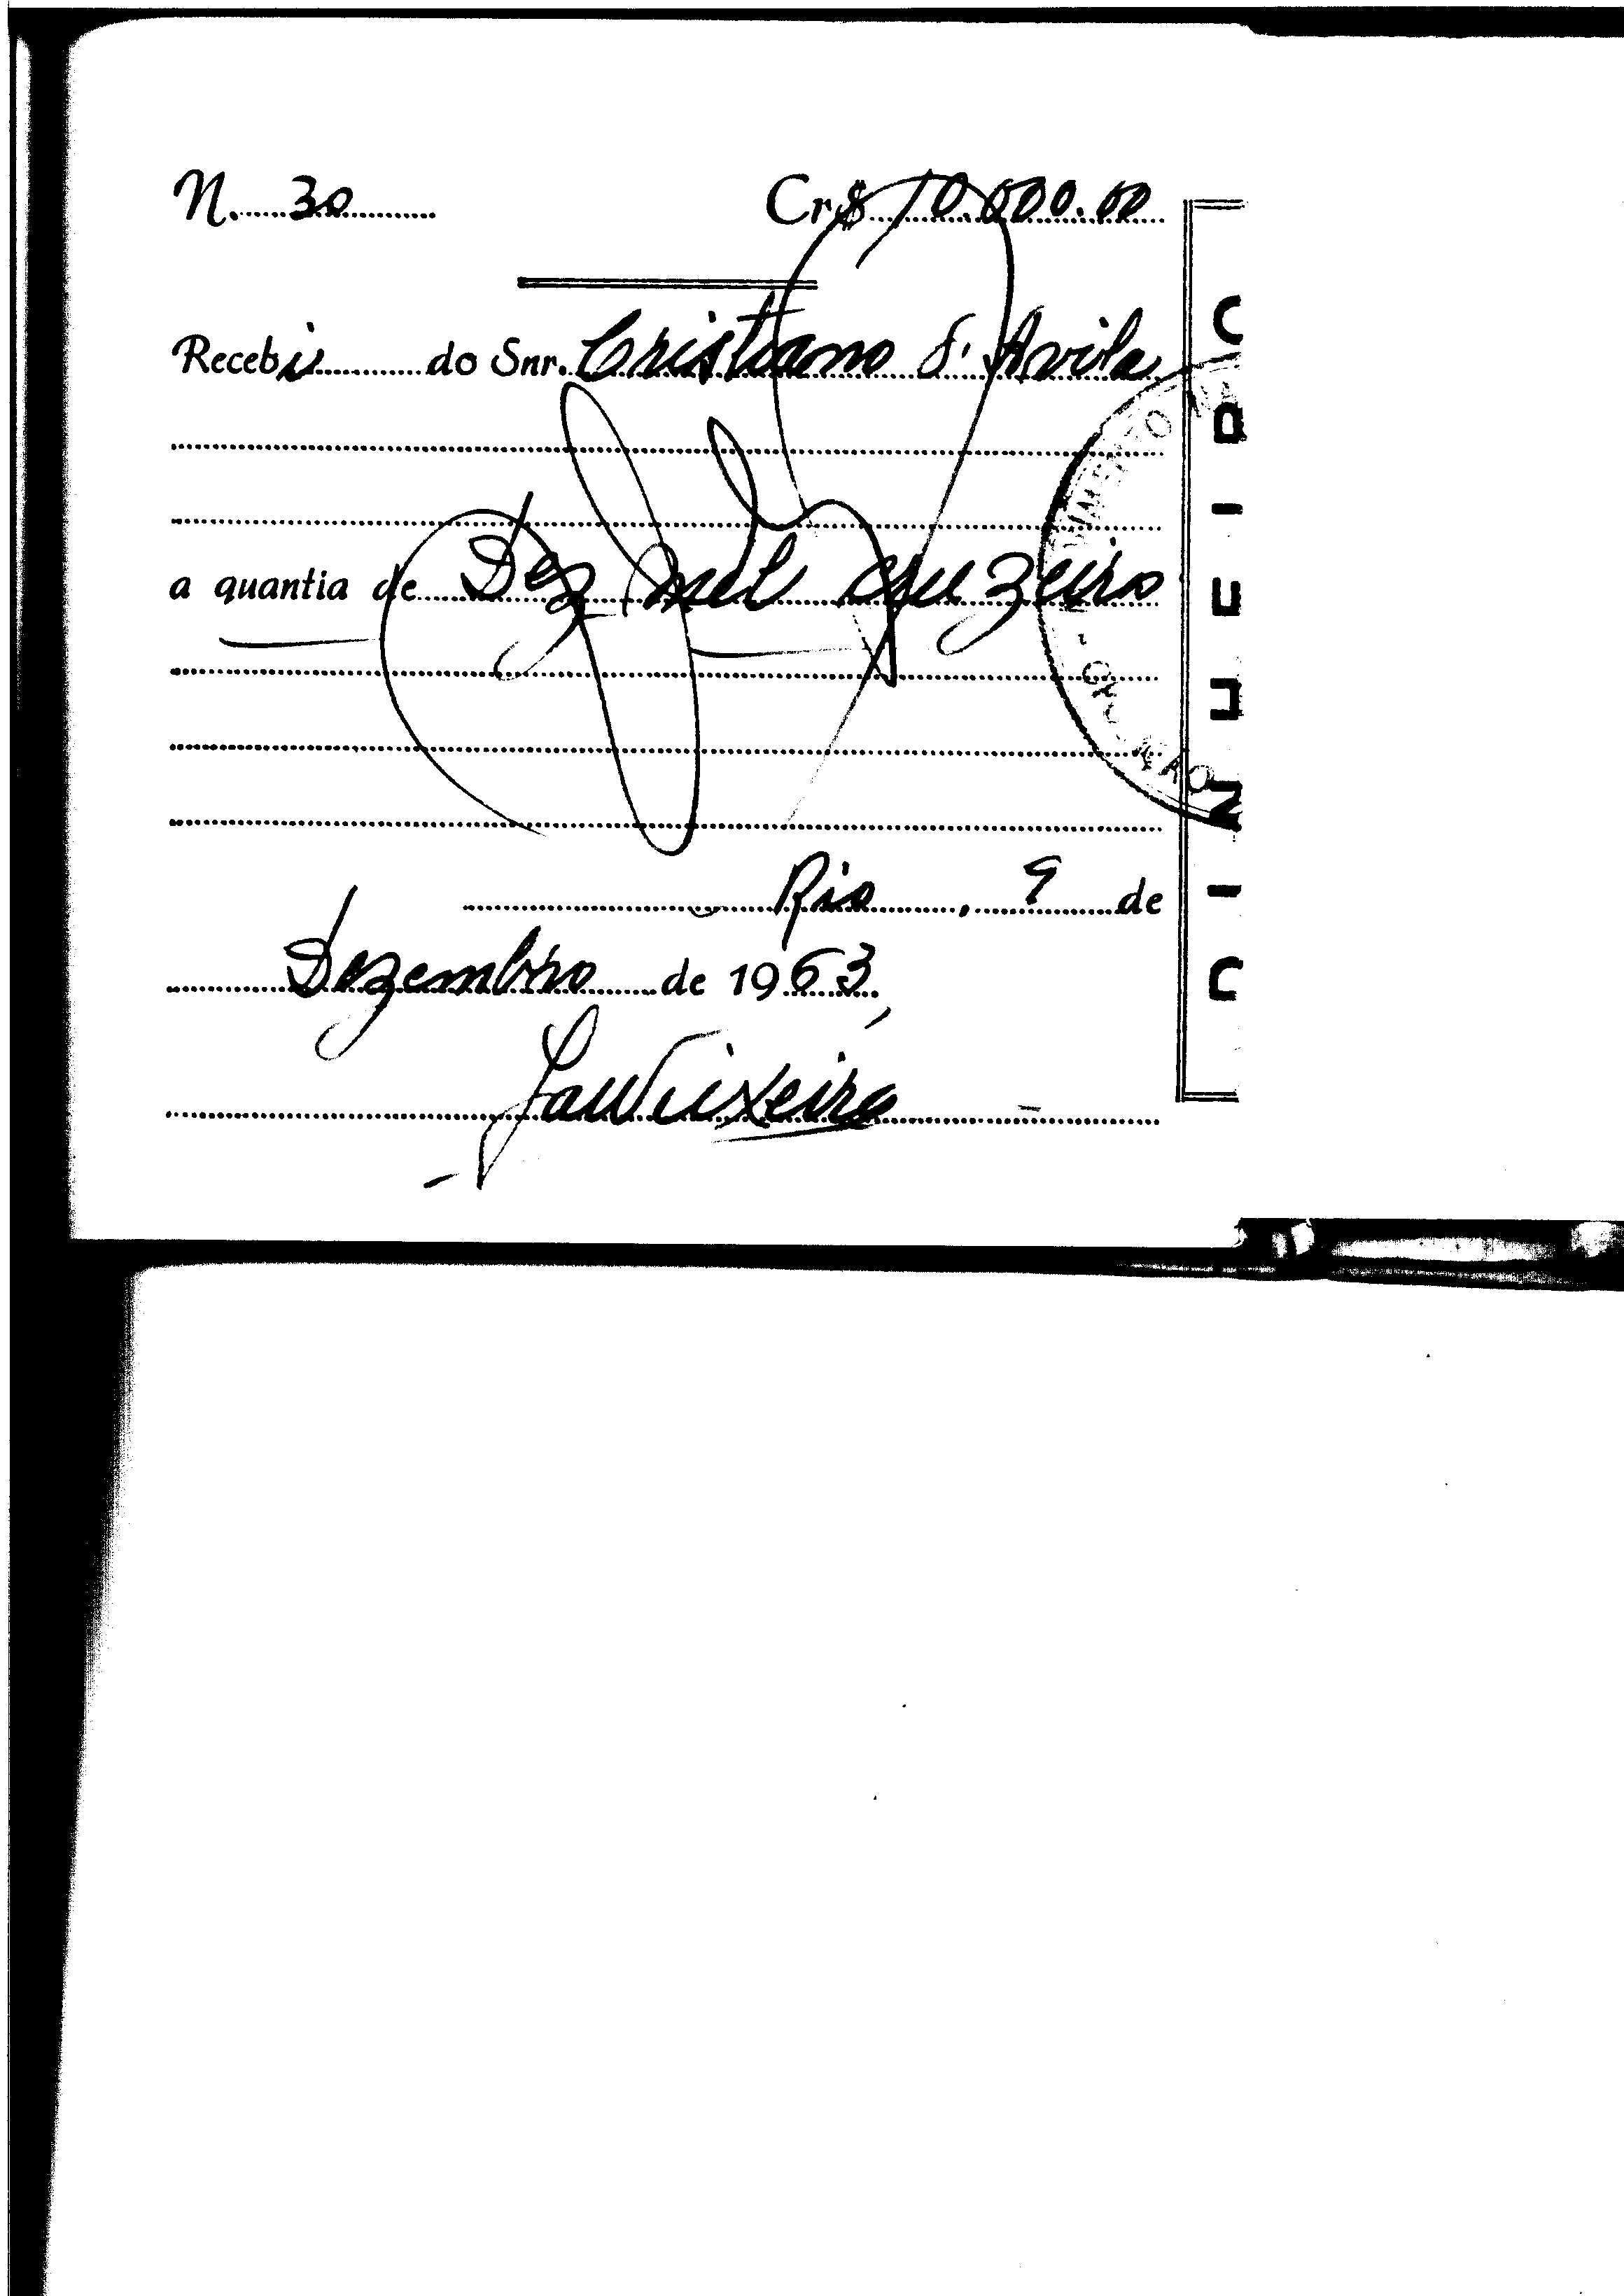 N. 30 Cr$ 10.000.00
Recebi do Snr. Cristiano d'Avila
a quantia de Dez mil cruzeiro
Rio, 9 de
Dezembro de 1963